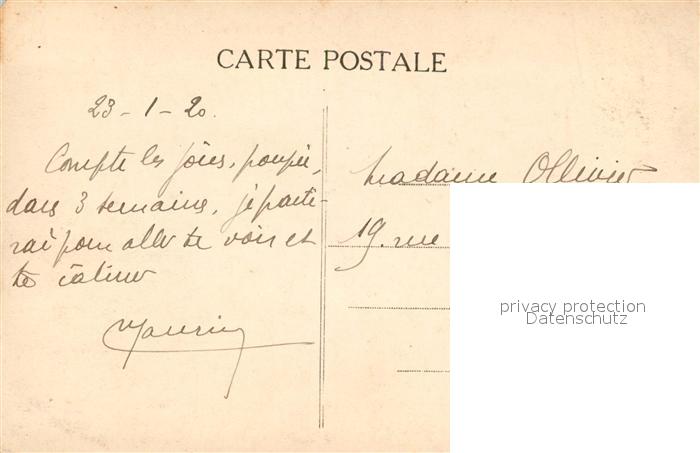 CARTE POSTALE
23-1-20.
Compte les jours, poupée,
dans 3 semaines, je parti-
rai pour aller te voir et
te câliner
Madame Ollivier
19. rue
privacy protection
Datenschutz